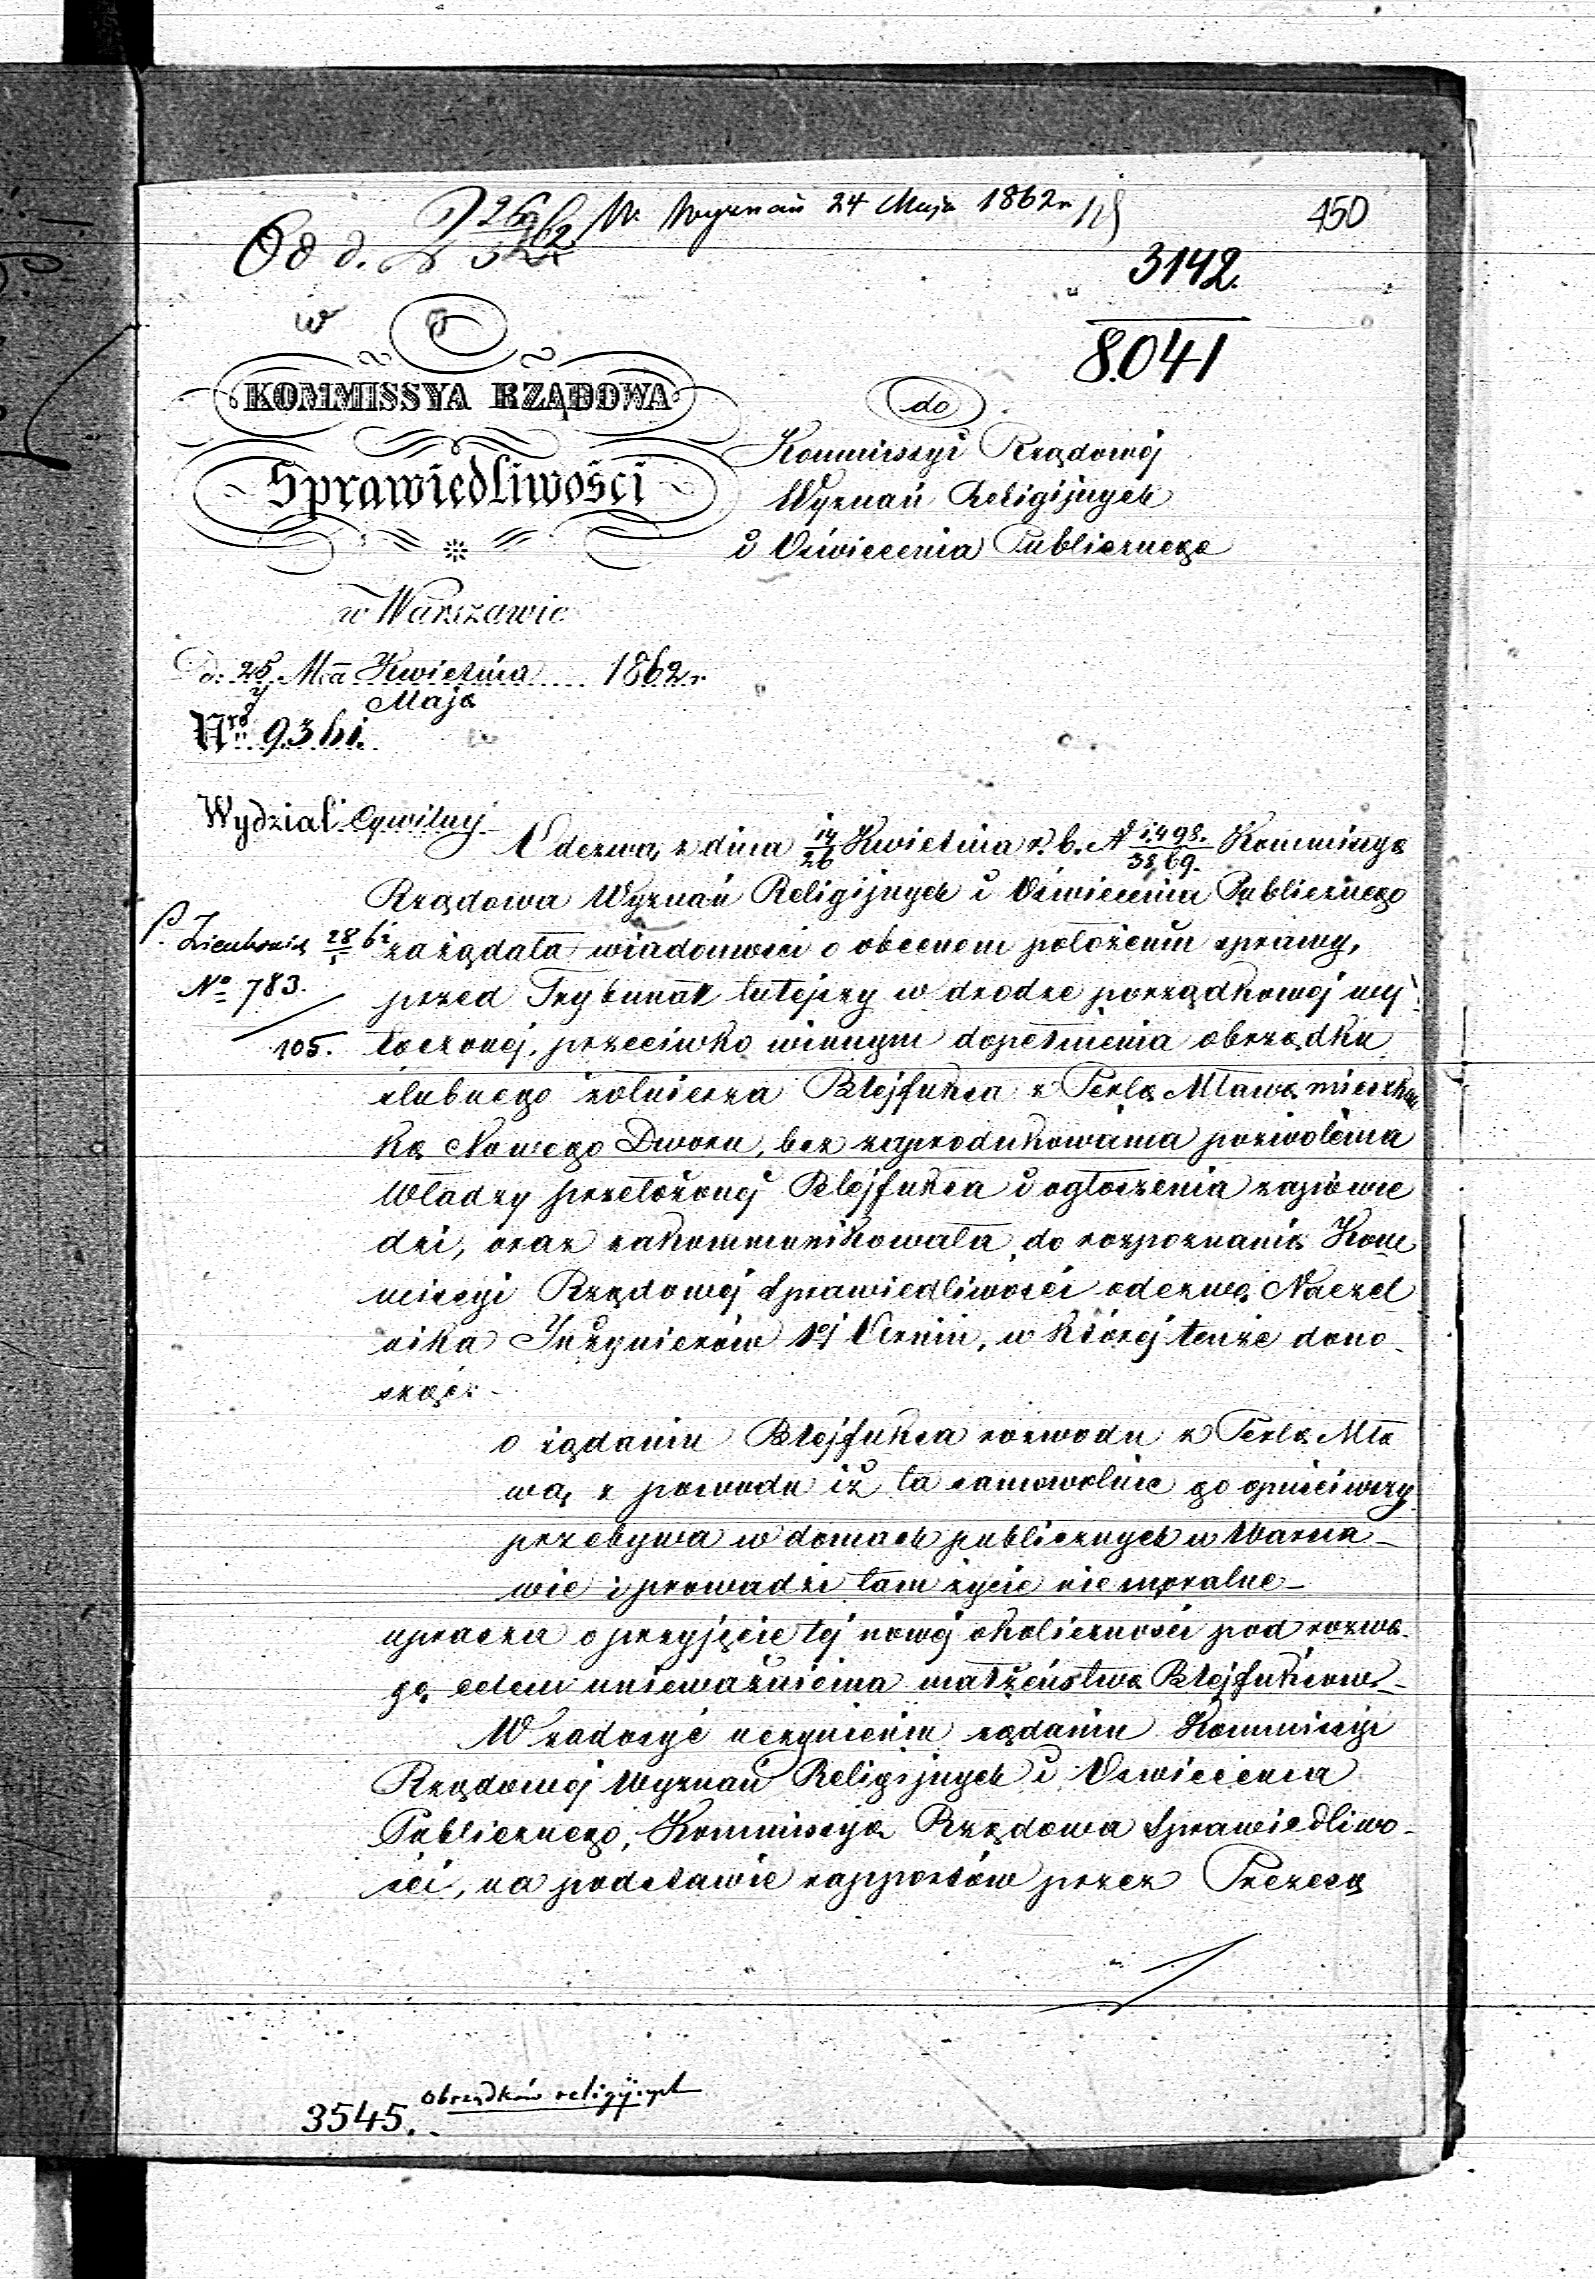 W. Wyznań 24 Maja 1862 r.
450
Od d.
3142.
8041
KOMMISSYA RZĄDOWA
Sprawiedliwości
w Warszawie
d: 25 Mca Kwietnia 1862 r.
7 Maja
Nro 9361.
Wydział Cywilny
do
Kommissyi Rządowéj
Wyznań Religijnych
i Oświecenia Publicznego
Odezwą z dnia 14/26 Kwietnia r. b. N 1498./3869. Kommissya
Rządowa Wyznań Religijnych i Oświecenia Publicznego
zażądała wiadomości o obecnem położeniu sprawy,
przed Trybunał tutejszy w drodze porządkowéj wy
toczonéj, przeciwko winnym dopełnienia obrządku
ślubnego żołnierza Blejfuksa z Perlą Mława mieszkan
ką Nowego Dworu, bez zaprodukowania pozwolenia
Władzy przełożonéj Blejfuksa i ogłoszenia zapowie
dzi, oraz zakommunikowała do rozpoznania Kom
missyi Rządowéj Sprawiedliwości odezwę Naczel
nika Inżynierów 1éj Armii, w któréj tenże dono-
sząc:-
o żądaniu Blejfuksa rozwodu z Perlą Mła
wą, z powodu iż ta samowolnie go opuściwszy
przebywa w domach publicznych w Warsza-
wie i prowadzi tam życie niemoralne-
uprasza o przyjęcie téj nowéj okoliczności pod rozwa-
gę, celem unieważnienia małżeństwa Blejfuksow-
W zadosyć uczynieniu żądaniu Kommissyi
Rządowéj Wyznań Religijnych i Oświecenia
Publicznego, Kommissya Rządowa Sprawiedliwo-
ści, na podstawie rapportów przez Prezesa
No 783.
105.
3545.
Obrządków religijnych